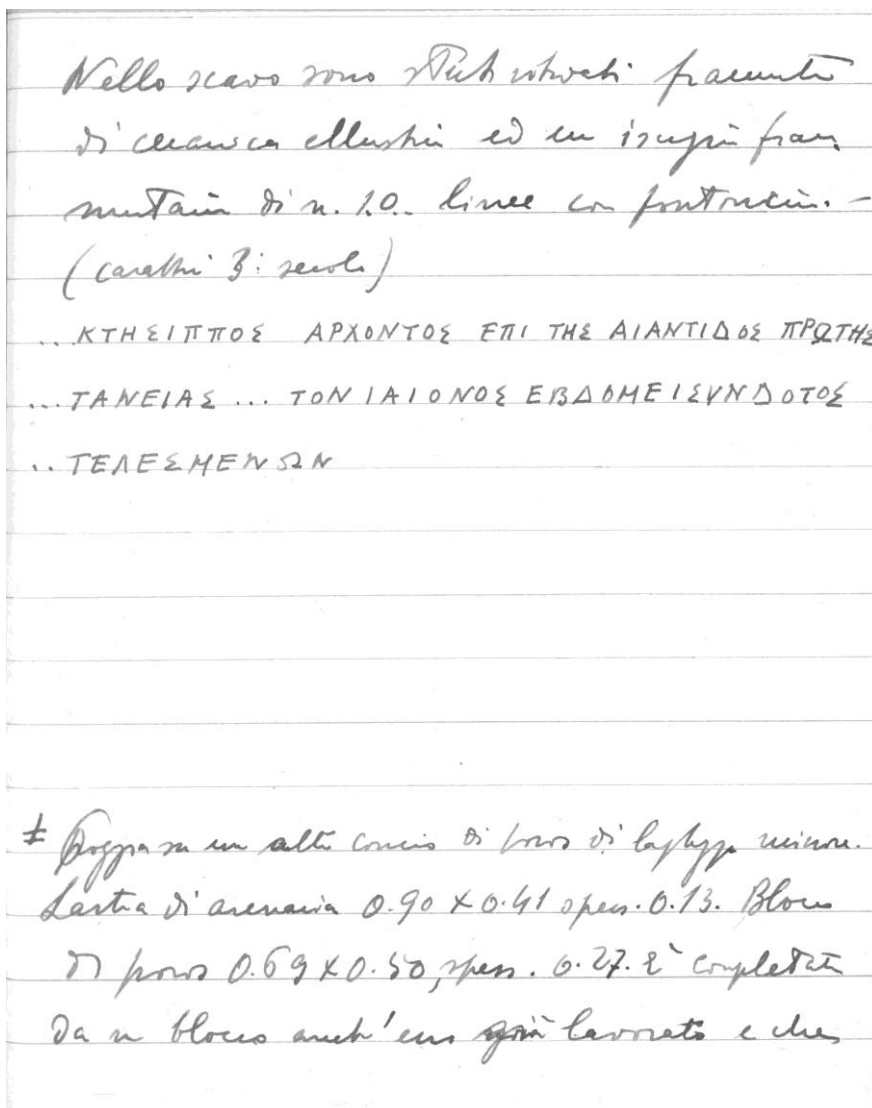 Nello scavo sono stati trovati frammenti
di ceramica ellenistica ed un iscrizione fram
mentaria di n. 10. linee con
(caratteri 3: secolo)
... ΚΤΗΣΙΠΠΟΣ ΑΡΧΟΝΤΟΣ ΕΠΙ ΤΗΣ ΑΙΑΝΤΙΔΟΣ ΠΡΩΤΗΣ
... ΤΑΝΕΙΑΣ ... ΤΟΝΙΑΙΟΝΟΣ ΕΒΔΟΜΕΙΣΥΝΔΟΤΟΣ
.. ΤΕΛΕΣΜΕΝΩΝ
‡ Poggia su un altro concio di poros di larghezza minore.
Lastra di arenaria 0.90 x 0.41 spess. 0.13. Blocco
di poros 0.69 x 0.50, spess. 0.27. È completata
da un blocco anch'esso già lavorato e che